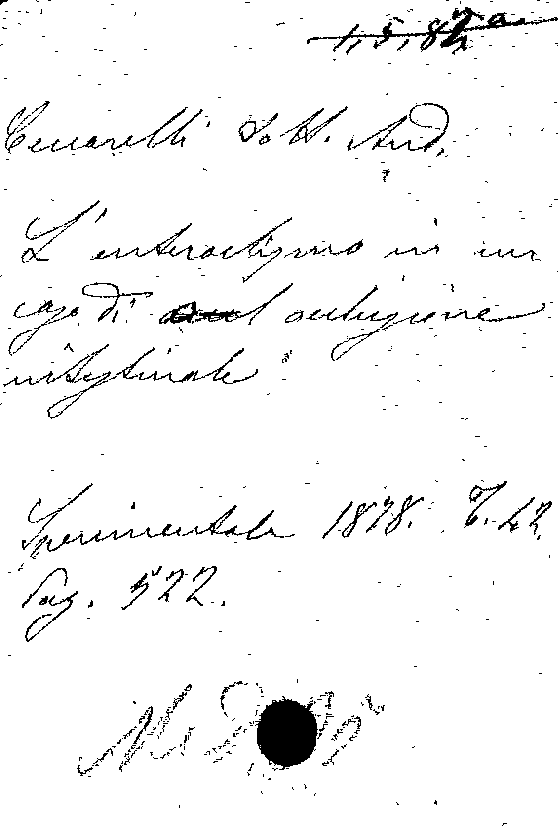 1,5,82a
Ceccarelli Dott. And.
L'enteroclisma in un
caso di occlusione
intestinale
Sperimentale 1878. T. 42.
Pag. 522.